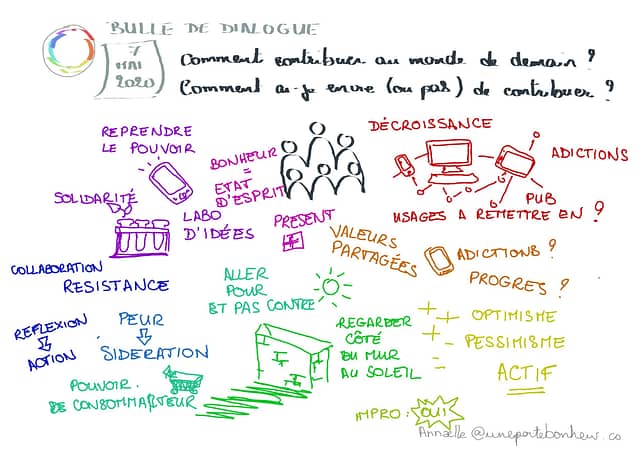 BULLE DE DIALOGUE
7
MAI
2020
Comment contribuer au monde de demain ?
Comment ai-je envie (ou pas) de contribuer ?
REPRENDRE
LE POUVOIR
BONHEUR
=
ETAT
D'ESPRIT
DÉCROISSANCE
ADICTIONS
PUB
USAGES A REMETTRE EN ?
SOLIDARITÉ
LABO
D'IDÉES
PRESENT
VALEURS
PARTAGÉES
ADICTIONS ?
PROGRES ?
COLLABORATION
RESISTANCE
ALLER
POUR
ET PAS CONTRE
REFLEXION
ACTION
PEUR
SIDERATION
REGARDER
CÔTÉ
DU MUR
AU SOLEIL
+ + OPTIMISME
+ - PESSIMISME
- ACTIF
POUVOIR
DE CONSOMMARTEUR
IMPRO : OUI
Annaëlle @uneportebonheur.co